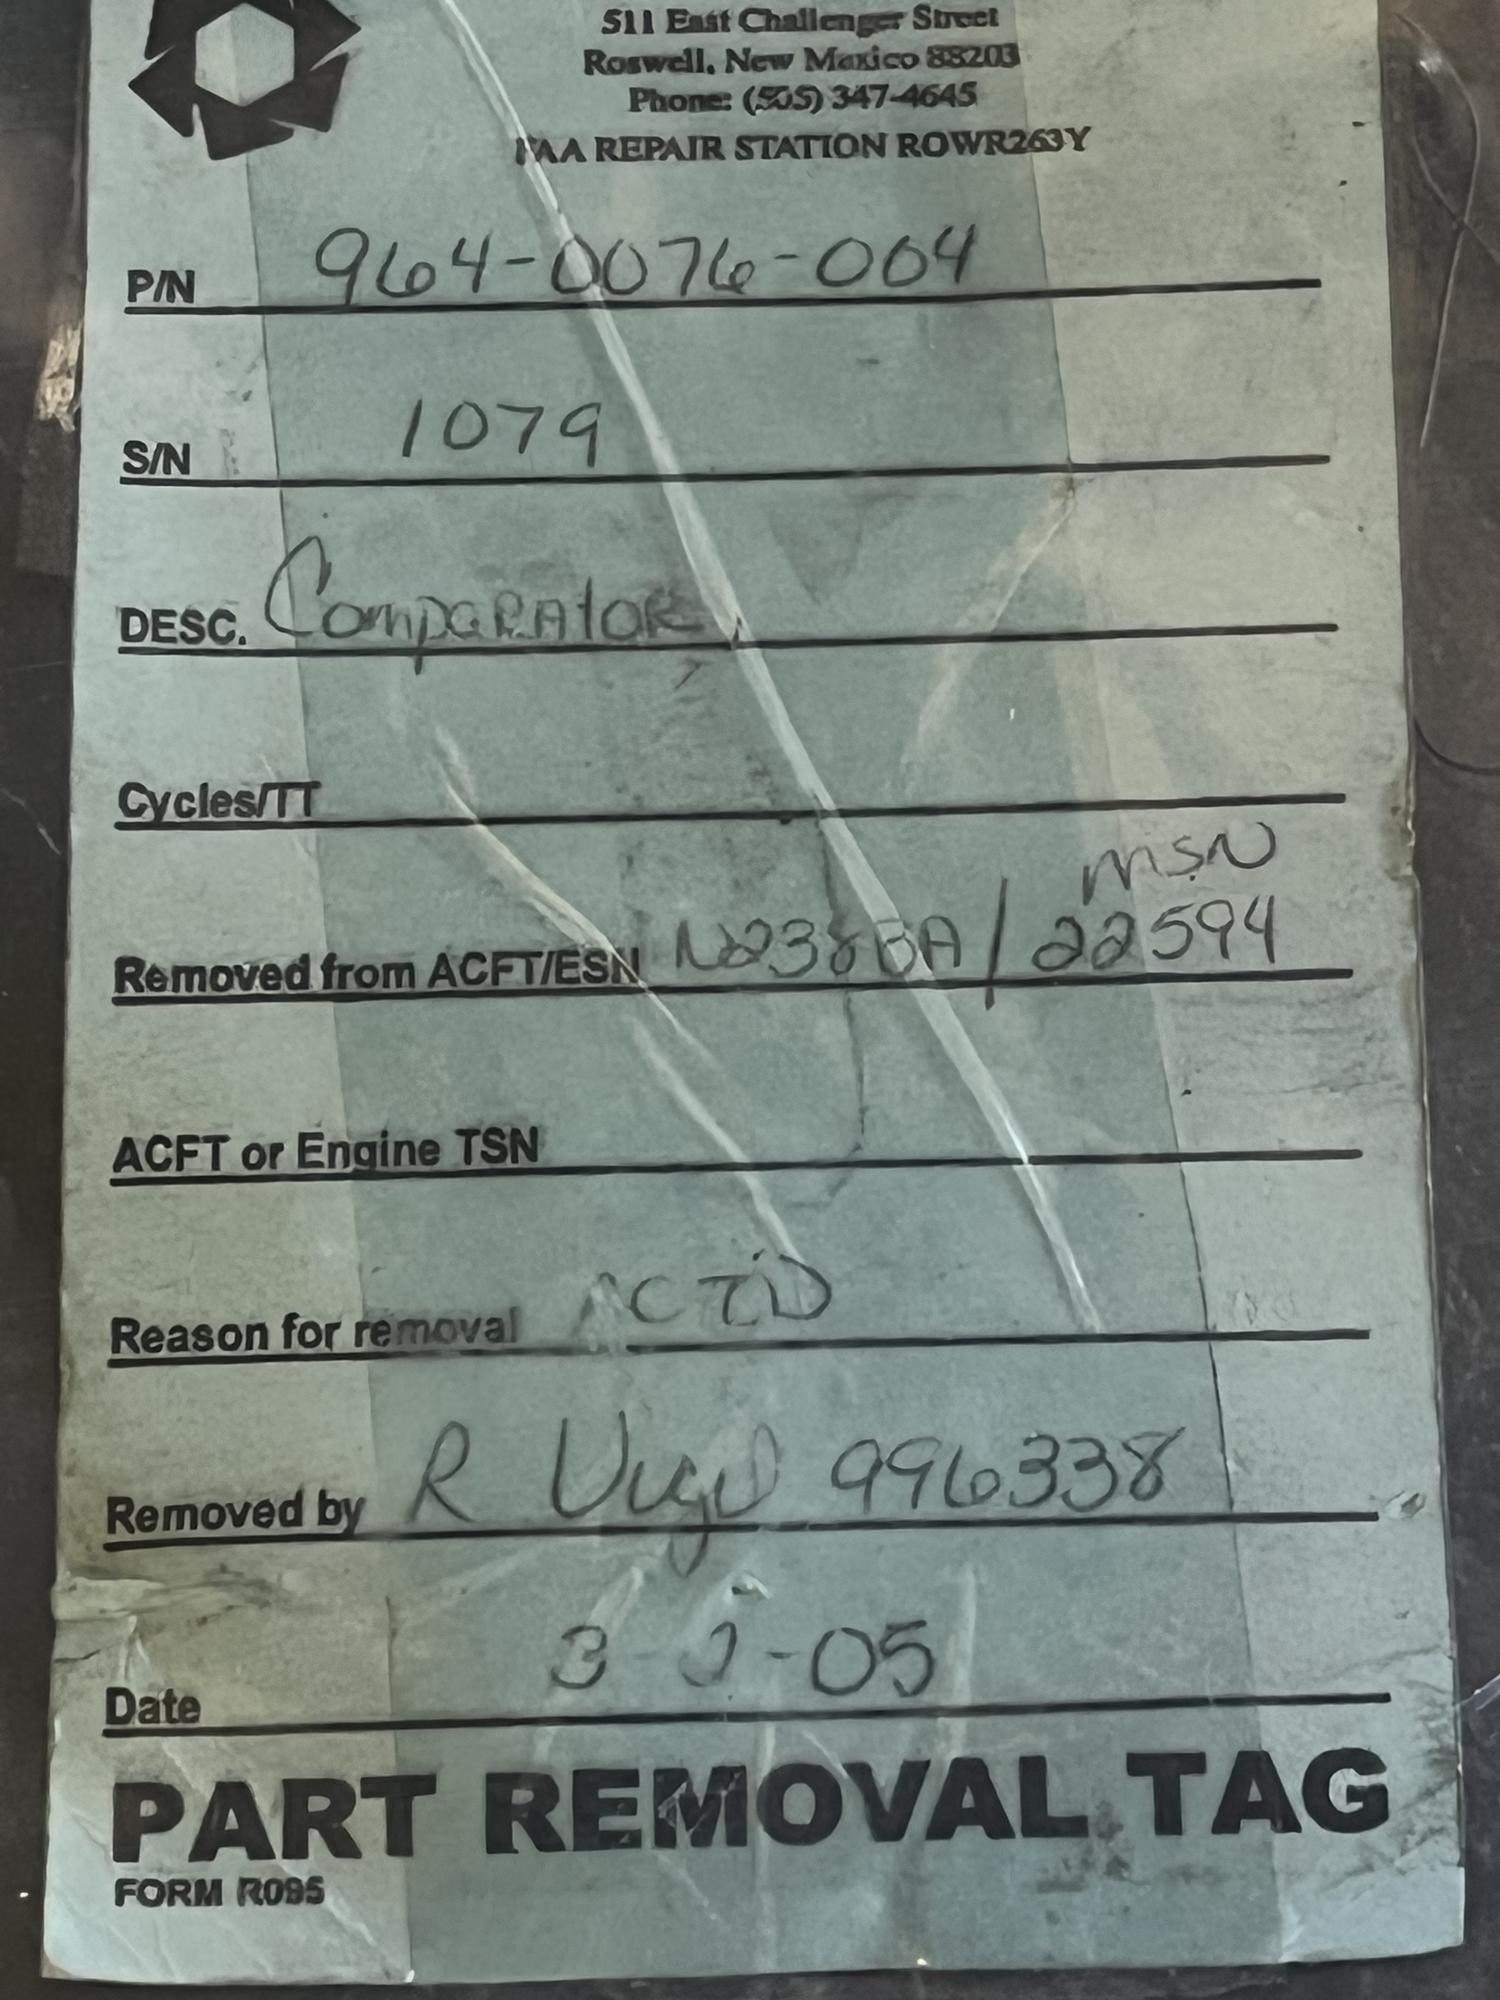 511 East Challenger Street
Roswell, New Mexico 88203
Phone: (505) 347-4645
FAA REPAIR STATION ROWR263Y
P/N 964-0076-004
S/N 1079
DESC. Comparator
Cycles/TT
MSN
Removed from ACFT/ESN N238BA / 22594
ACFT or Engine TSN
Reason for removal
Removed by R 996338
Date 3- -05
PART REMOVAL TAG
FORM R095